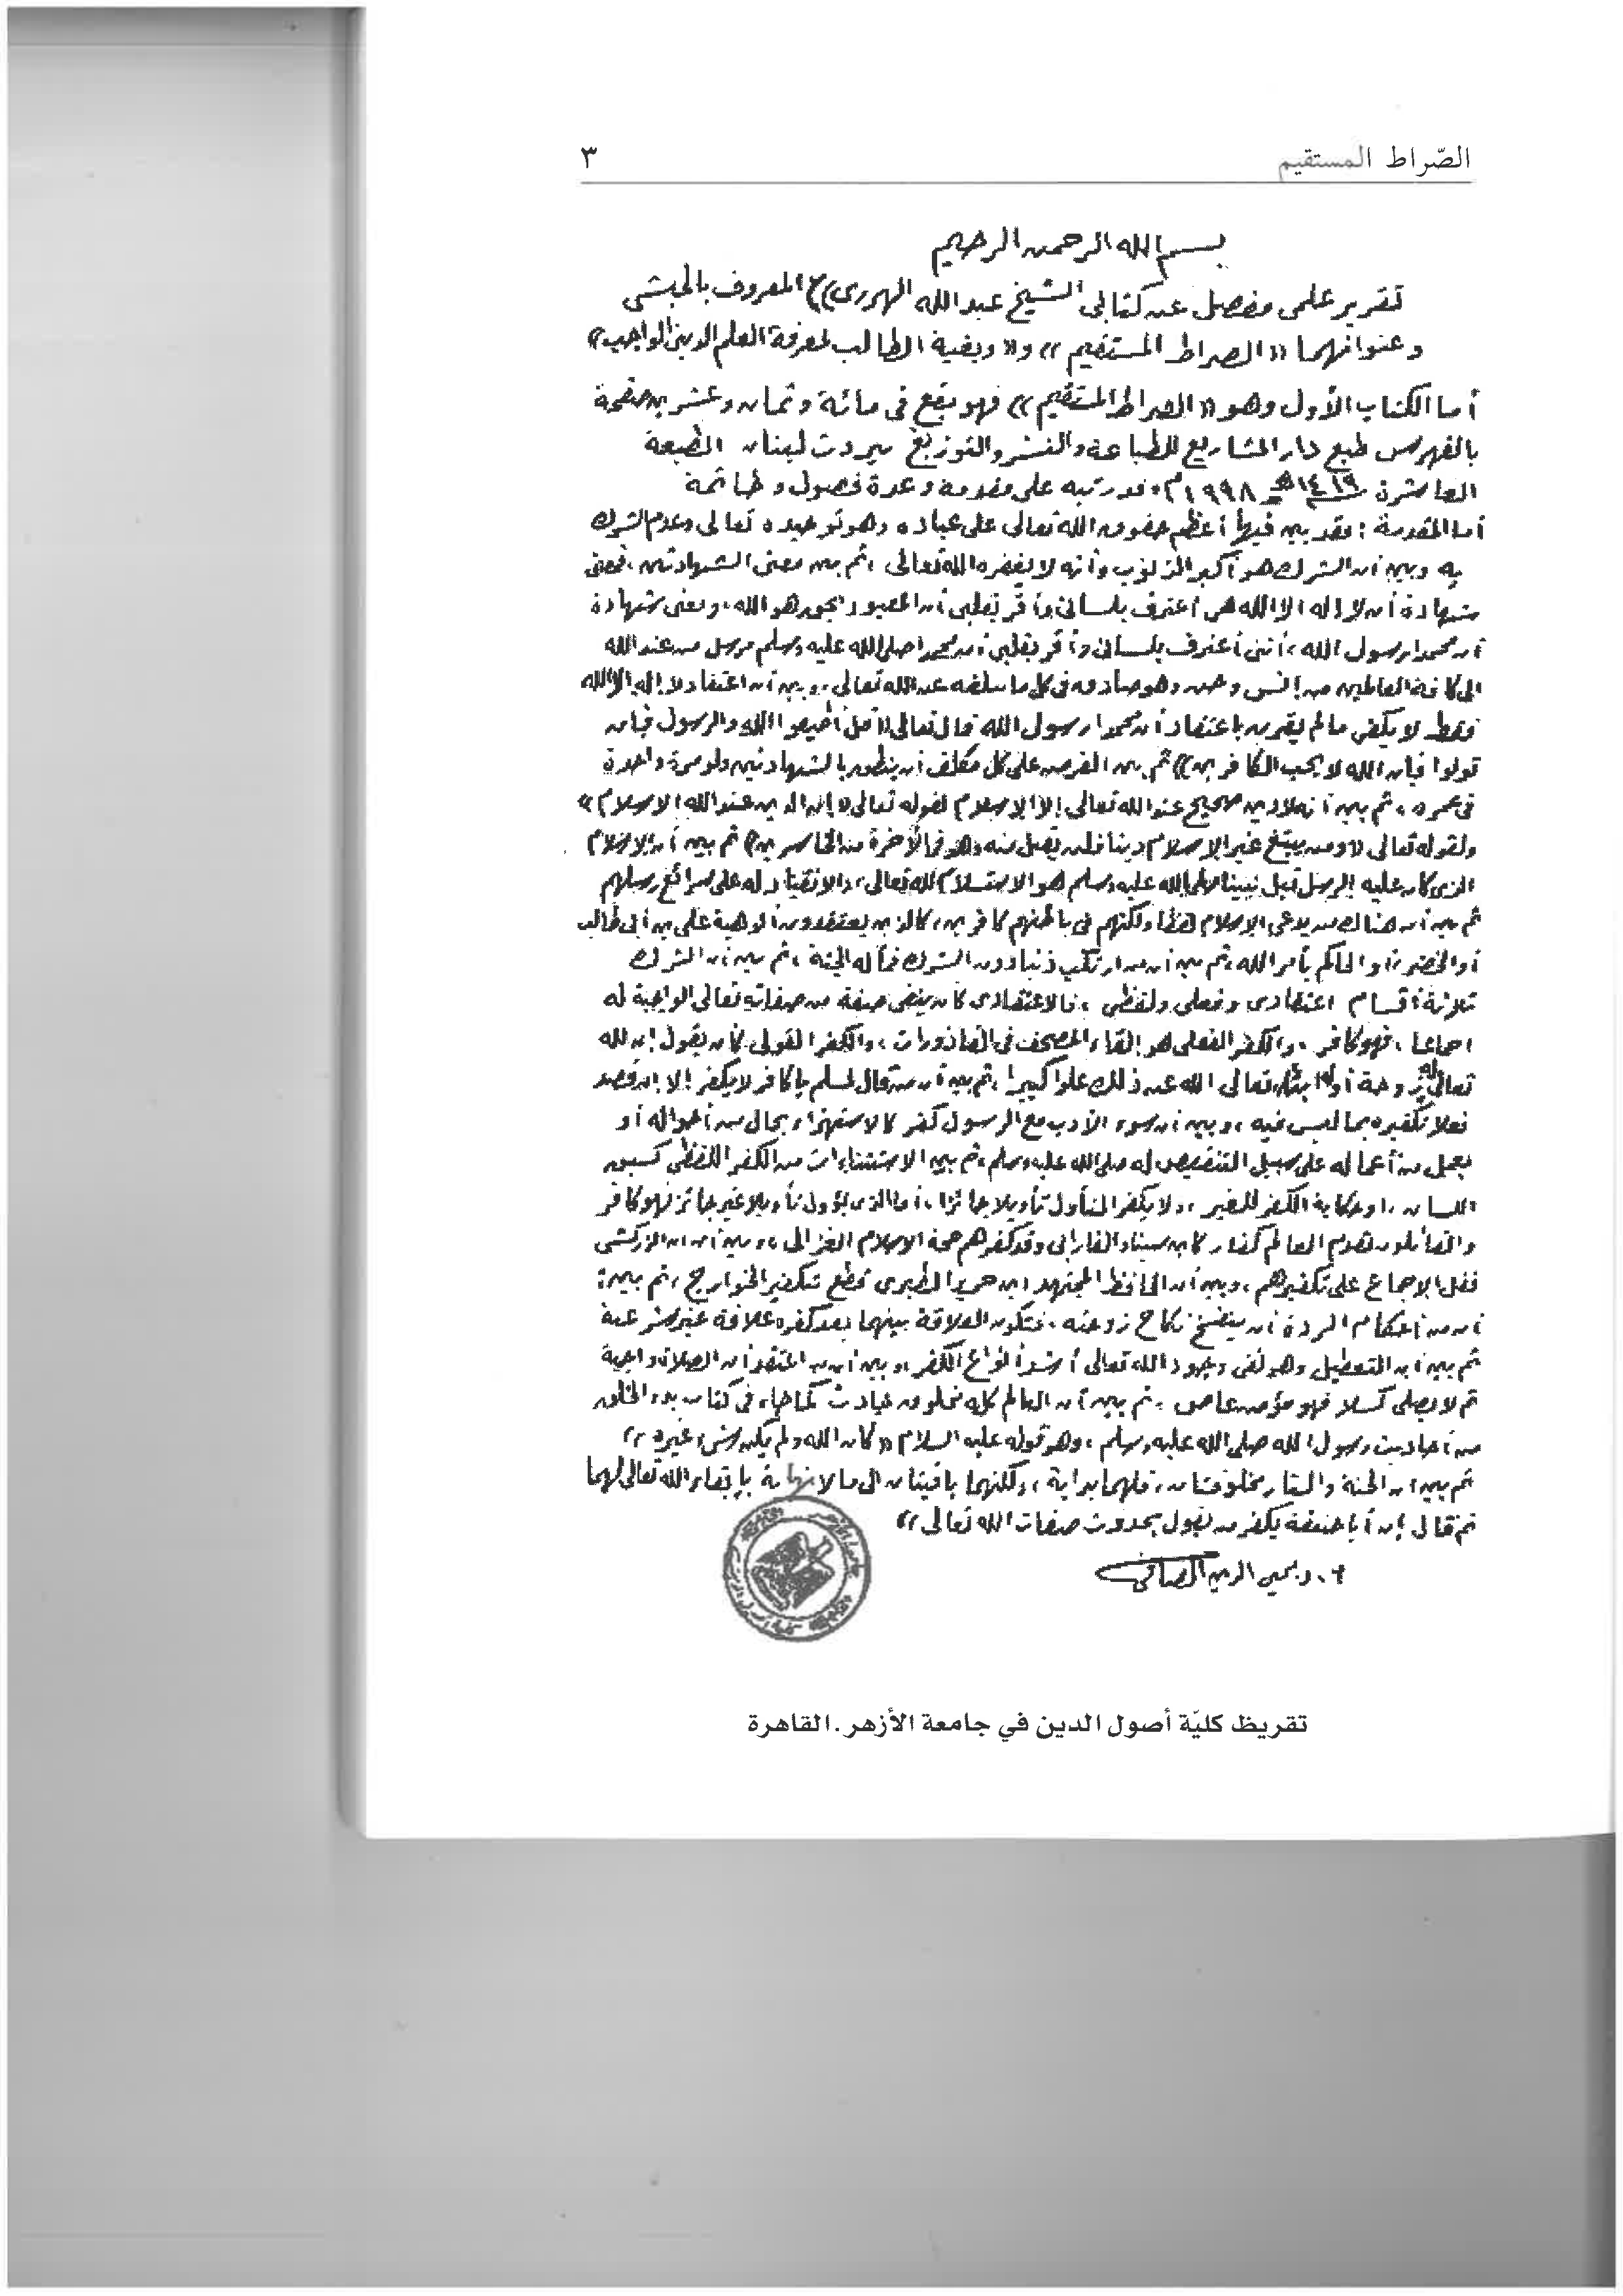 الصّراط المستقيم ٣
بسم الله الرحمن الرحيم
تقرير علمى مفصل عن كتابى الشيخ عبد الله الهررى المعروف بالحبشى
وعنوانهما «الصراط المستقيم» و«بغية الطالب لمعرفة العلم الدينى الواجب»
أما الكتاب الأول وهو «الصراط المستقيم» فهو يقع فى مائة وثمان وعشرين صفحة
بالفهرس طبع دار المشاريع للطباعة والنشر والتوزيع بيروت لبنان الطبعة
العاشرة ١٤١٩هـ ١٩٩٨م وقد رتبه على مقدمة وعدة فصول وخاتمة
أما المقدمة: فقد بين فيها أعظم حقوق الله تعالى على عباده وهو توحيده تعالى وعدم الشرك
به وبين أن الشرك هو أكبر الذنوب وأنه لا يغفره الله تعالى، ثم بين معنى الشهادتين، فمعنى
شهادة أن لا إله إلا الله هى أعترف بلسانى وأقر بقلبى أن المعبود بحق هو الله، ومعنى شهادة
أن محمدا رسول الله، أننى أعترف بلسانى وأقر بقلبى أن محمدا صلى الله عليه وسلم مرسل من عند الله
الى كافة العالمين من إنس وجن وهو صادق فى كل ما بلغه عن الله تعالى، وبين أن اعتقاد لا إله إلا الله
فقط لا يكفى ما لم يقرن باعتقاد أن محمدا رسول الله قال تعالى «قل أطيعوا الله والرسول فإن
تولوا فإن الله لا يحب الكافرين» ثم بين الفرض على كل مكلف أن ينطق بالشهادتين ولو مرة واحدة
فى عمره، ثم بين أنه لا دين صحيح عند الله تعالى إلا الإسلام لقوله تعالى «إن الدين عند الله الإسلام»
ولقوله تعالى «ومن يبتغ غير الإسلام دينا فلن يقبل منه وهو فى الآخرة من الخاسرين» ثم بين أن الإسلام
الذى كان عليه الرسل قبل نبينا صلى الله عليه وسلم هو الاستسلام لله تعالى، والانقياد له على شرائع رسلهم
ثم بين أن هناك من يدعى الإسلام لفظا ولكنهم فى باطنهم كافرين، كالذين يعتقدون ألوهية على بن أبى طالب
أو الخضر أو الحاكم بأمر الله، ثم بين أن من ارتكب ذنبا دون الشرك فمآله الجنة، ثم بين أن الشرك
ثلاثة أقسام اعتقادى وفعلى ولفظى، فالاعتقادى كأن ينفى صفة من صفاته تعالى الواجبة له
اجماعا، فهو كافر، والكفر الفعلى هو إلقاء المصحف فى القاذورات، والكفر القولى كأن يقول إن لله
تعالى زوجة أو ابنا، تعالى الله عن ذلك علوا كبيرا، ثم بين أن من قال لمسلم يا كافر لا يكفر إلا إن قصد
فعلا تكفيره بما ليس فيه، وبين أن سوء الأدب مع الرسول كفر كالاستهزاء بحال من أحواله أو
بعمل من أعماله على سبيل التنقيص له صلى الله عليه وسلم، ثم بين الاستثناءات من الكفر اللفظى كسبق
اللسان، أو حكاية الكفر للغير، ولا يكفر المتأول تأويلا جائزا، أما الذى يؤول تأويلا غير جائز فهو كافر
والقائلون بقدم العالم كفار كابن سينا والفارابى وقد كفرهم حجة الإسلام الغزالى، وبين أن الزركشى
نقل الإجماع على تكفيرهم، وبين أن الحافظ المجتهد ابن جرير الطبرى قطع بتكفير الخوارج، ثم بين:
أن من أحكام الردة أن ينفسخ نكاح زوجته، فتكون العلاقة بينهما بعد كفره علاقة غير شرعية
ثم بين أن التعطيل وهو نفى وجود الله تعالى أشد أنواع الكفر، وبين أن من اعتقد أن الصلاة واجبة
ثم لا يصلى كسلا فهو مؤمن عاص، ثم بين أن العالم كله مخلوق حادث كما جاء فى كتاب بدء الخلق
من أحاديث رسول الله صلى الله عليه وسلم، وهو قوله عليه السلام «كان الله ولم يكن شىء غيره»
ثم بين أن الجنة والنار مخلوقتان، فلهما بداية، ولكنهما باقيتان الى ما لا نهاية بإبقاء الله تعالى لهما
ثم قال إن أبا حنيفة يكفر من يقول بحدوث صفات الله تعالى»
أ.د محيى الدين الصافى
تقريظ كليّة أصول الدين في جامعة الأزهر.القاهرة